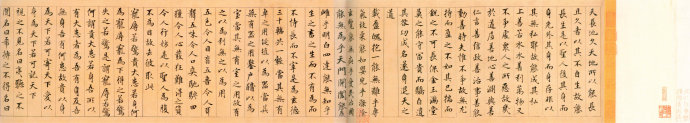 天長地久天地所以能長
且久者以其不自生故能
長生是以聖人後其身而
身先外其身而身存非以
其無私邪故能成其私
上善若水水善利萬物又
不爭處衆人之所惡故幾
於道居善地心善淵與善
仁言善信政善治事善能
動善時夫惟不爭故無尤
持而盈之不如其已揣而
銳之不可長保金玉滿堂
莫之能守富貴而驕自遺
其咎功成名遂身退天之
道
載營魄抱一能無離乎專
氣致柔能如嬰兒乎滌除
玄覽能無疵乎愛民治國
能無為乎天門開闔能為
雌乎明白四達能無知乎
生之畜之生而不有為而
不恃長而不宰是為玄德
三十輻共一轂當其無有
車之用埏埴以為器當其
無有器之用鑿戶牖以為
室當其無有室之用故有
之以為利無之以為用
五色令人目盲五音令人耳
聾五味令人口爽馳騁田
獵令人心發狂難得之貨
令人行妨是以聖人為腹
不為目故去彼取此
寵辱若驚貴大患若身何
謂寵辱寵為下得之若驚
失之若驚是謂寵辱若驚
何謂貴大患若身吾所以
有大患者為吾有身及吾
無身吾有何患故貴以身
為天下者可寄天下愛以
身為天下者可託天下
視之不見名曰夷聽之不
聞名曰希搏之不得名曰